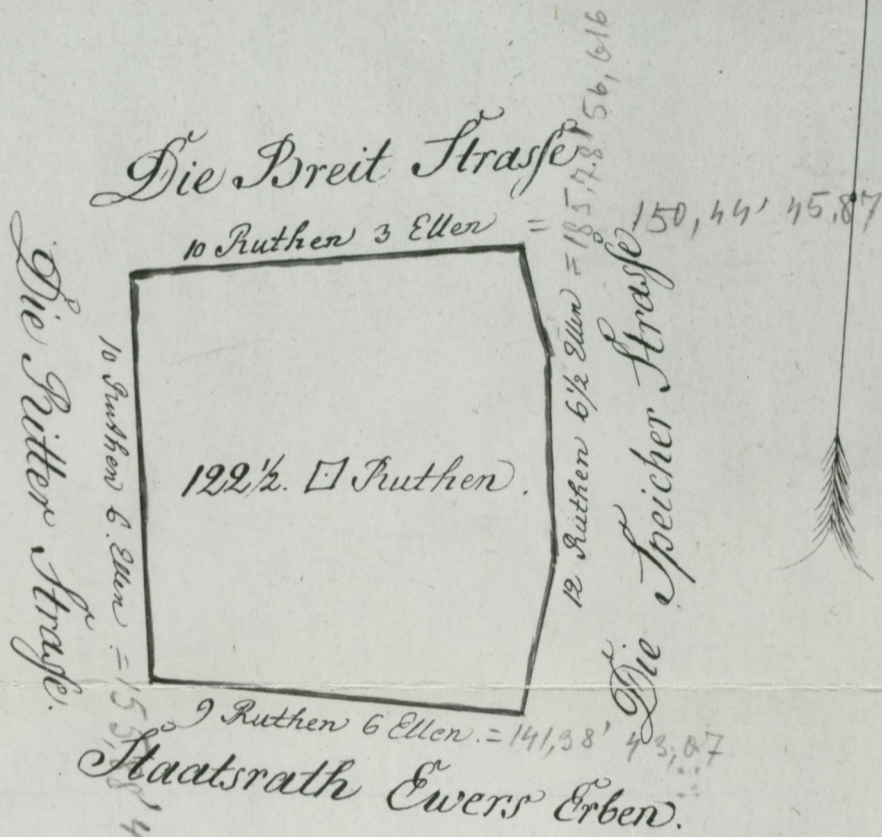 Die Breit Strasse
10 Ruthen 3 Ellen = 150,44' 45,87
Die Ritter Straße.
10 Ruthen 6. Ellen =
122½. □ Ruthen.
12 Ruthen 6½ Ellen = 185,78' 56,616
Die Speicher Strasse
9 Ruthen 6 Ellen. = 141,38' 43,07
Staatsrath Ewers Erben.